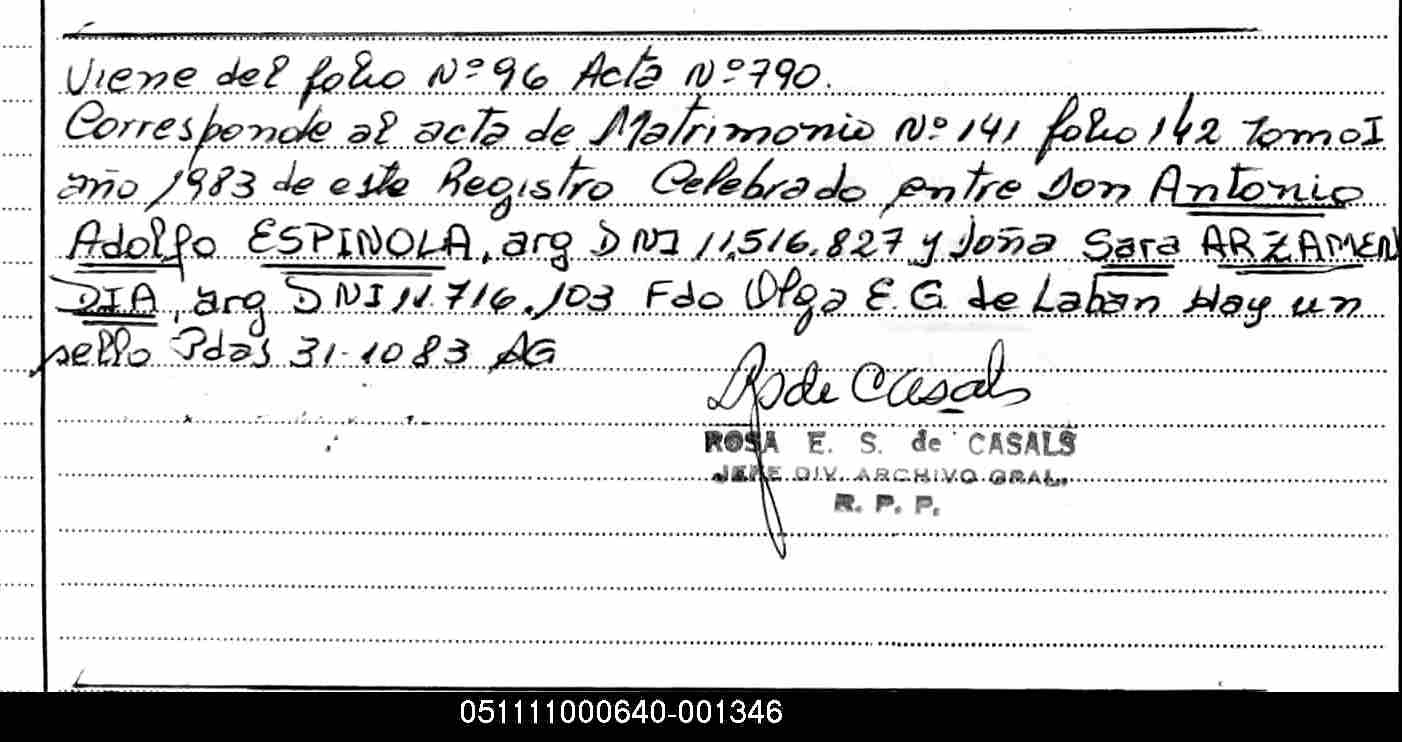 Viene del folio Nº 96 Acta Nº 790.
Corresponde al acta de Matrimonio Nº 141 folio 142 Tomo I
año 1983 de este Registro Celebrado entre Don Antonio
Adolfo ESPINOLA, arg DNI 11.516.827 y Doña Sara ARZAMEN
DIA, arg DNI 11.716.103 Fdo Olga E. G. de Laban Hay un
sello Pdas 31-10 83 AG
de Casals
ROSA E. S. de CASALS
JEFE DIV. ARCHIVO GRAL.
R. P. P.
051111000640-001346